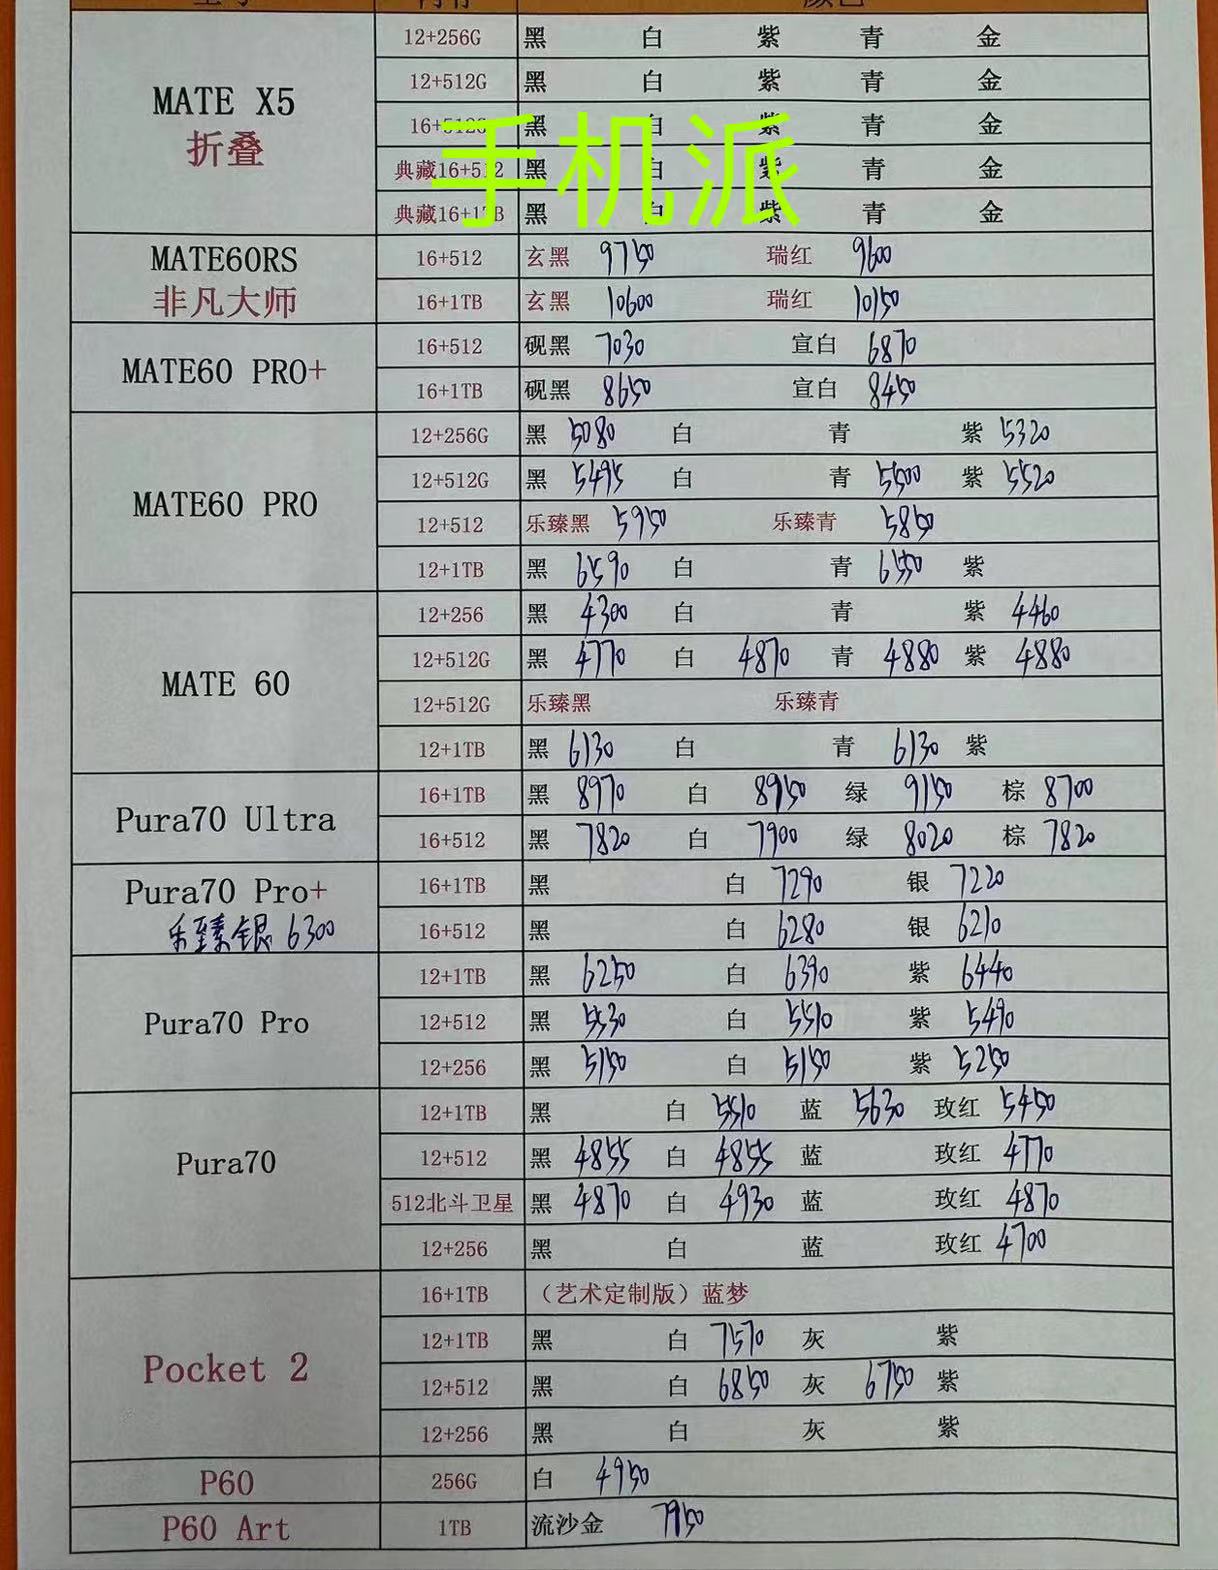 MATE X5
折叠
12+256G 黑 白 紫 青 金
12+512G 黑 白 紫 青 金
16+512G 黑 白 紫 青 金
典藏16+512 黑 白 紫 青 金
典藏16+1TB 黑 白 紫 青 金
手机派
MATE60RS
非凡大师
16+512 玄黑 9750 瑞红 9600
16+1TB 玄黑 10600 瑞红 10150
MATE60 PRO+
16+512 砚黑 7030 宣白 6870
16+1TB 砚黑 8650 宣白 8450
MATE60 PRO
12+256G 黑 5080 白 青 紫 5320
12+512G 黑 5495 白 青 5500 紫 5520
12+512 乐臻黑 5950 乐臻青 5850
12+1TB 黑 6590 白 青 6550 紫
MATE 60
12+256 黑 4300 白 青 紫 4460
12+512G 黑 4770 白 4870 青 4880 紫 4880
12+512G 乐臻黑 乐臻青
12+1TB 黑 6130 白 青 6130 紫
Pura70 Ultra
16+1TB 黑 8970 白 8950 绿 9150 棕 8700
16+512 黑 7820 白 7900 绿 8020 棕 7820
Pura70 Pro+
乐臻银 6300
16+1TB 黑 白 7290 银 7220
16+512 黑 白 6280 银 6210
Pura70 Pro
12+1TB 黑 6250 白 6390 紫 6440
12+512 黑 5530 白 5510 紫 5490
12+256 黑 5150 白 5150 紫 5250
Pura70
12+1TB 黑 白 5510 蓝 5630 玫红 5450
12+512 黑 4855 白 4855 蓝 玫红 4770
512北斗卫星 黑 4870 白 4930 蓝 玫红 4870
12+256 黑 白 蓝 玫红 4700
Pocket 2
16+1TB （艺术定制版）蓝梦
12+1TB 黑 白 7570 灰 紫
12+512 黑 白 6850 灰 6750 紫
12+256 黑 白 灰 紫
P60 256G 白 4950
P60 Art 1TB 流沙金 7950